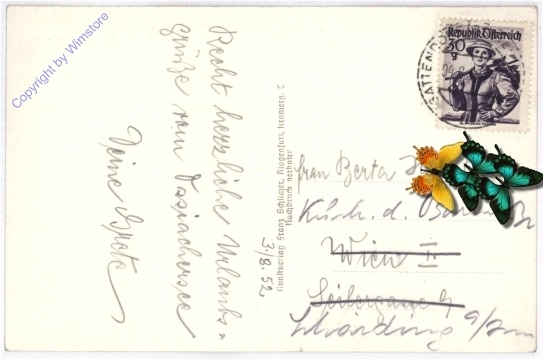 Copyright by Wimstore
Recht herzliche Urlaubs-
grüße vom Ossiachersee
Deine Grete
3./8.52
Kunstverlag Franz Schilcher, Klagenfurt,
Nachdruck verboten
Republik Österreich
30
g
Frau Berta
d.
Wien I
Seilergasse
Schärding